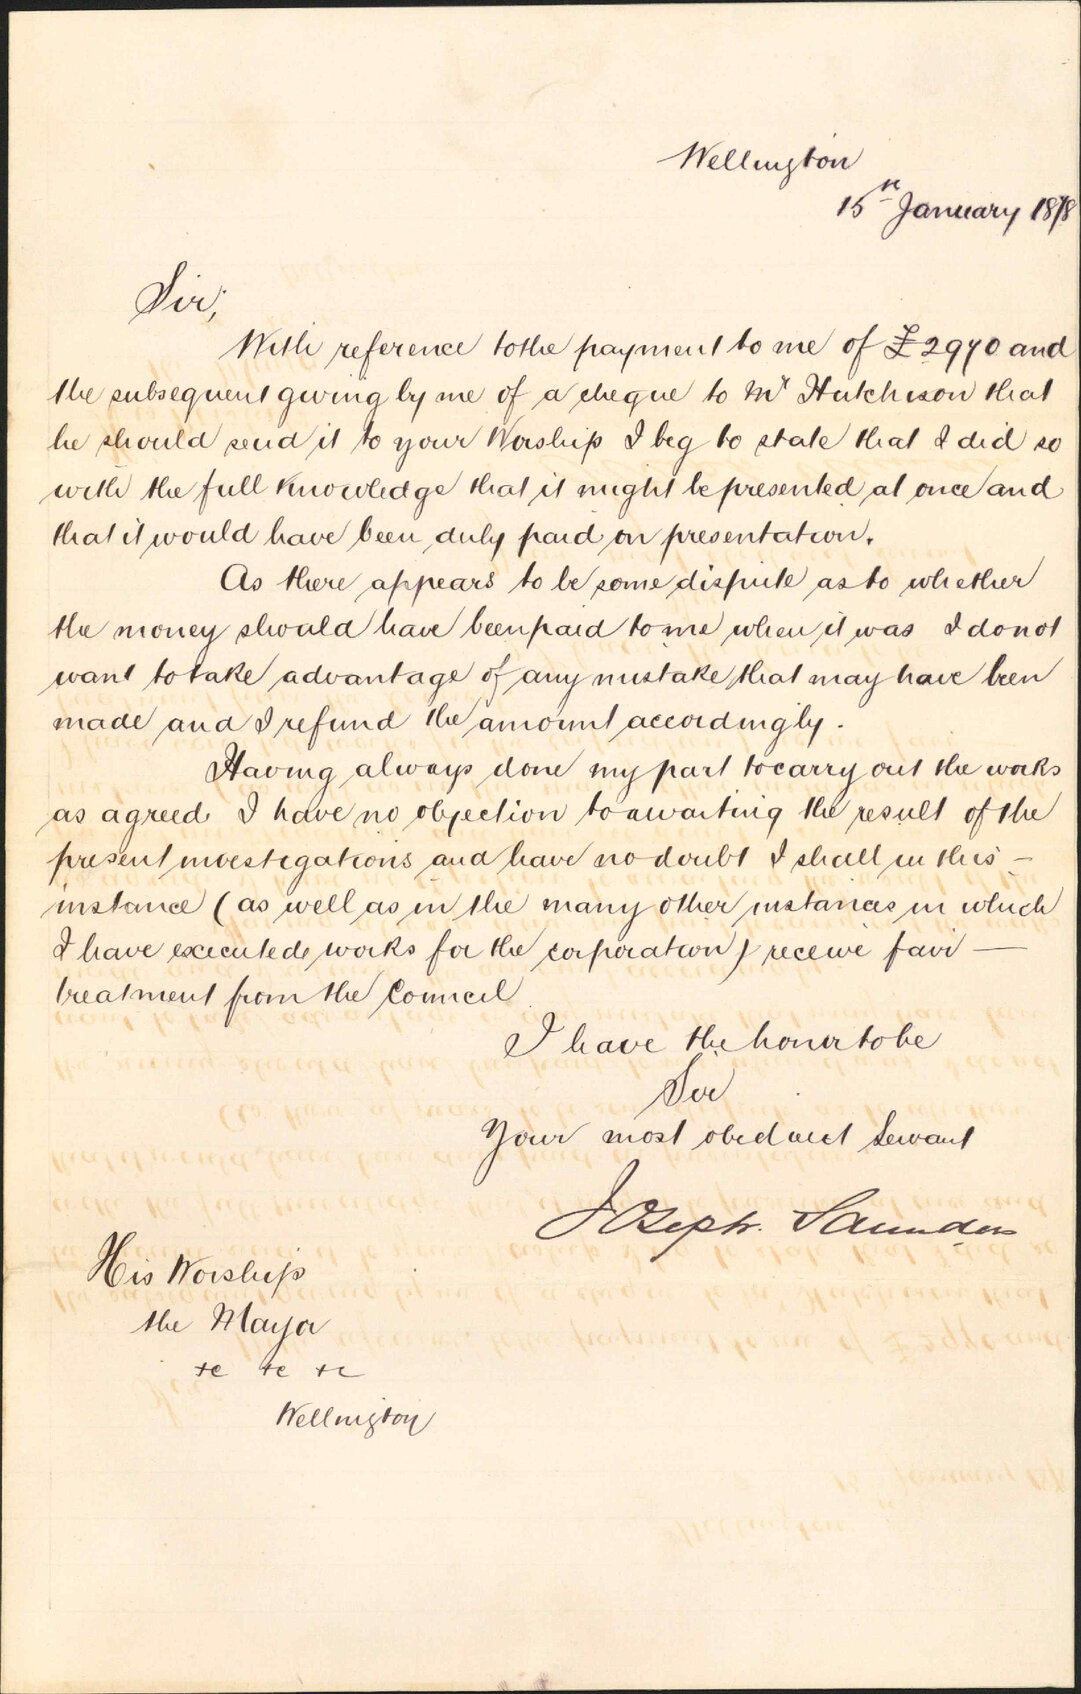 Wellington
15th January 1878
Sir,
With reference to the payment to me of £2970 and
the subsequent giving by me of a cheque to Mr Hutchison that
he should send it to your Worship I beg to state that I did so
with the full knowledge that it might be presented at once and
that it would have been duly paid on presentation.
As there appears to be some dispute as to whether
the money should have been paid to me when it was I do not
want to take advantage of any mistake that may have been
made and I refund the amount accordingly.
Having always done my part to carry out the works
as agreed I have no objection to awaiting the result of the
present investigations and have no doubt I shall in this —
instance (as well as in the many other instances in which
I have executed works for the corporation) receive fair —
treatment from the Council
I have the honor to be
Sir
Your most obedient Servant
Joseph. Saunders
His Worship
the Mayor
&c &c &c
Wellington